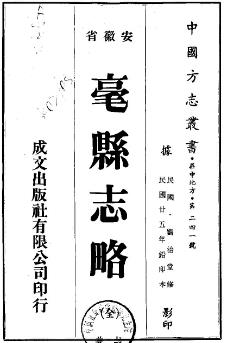 中國方志叢書·華中地方·第二四一號
據
民國·劉治堂修
民國廿五年鉛印本
影印
安徽省
毫縣志略
(全)
成文出版社有限公司印行